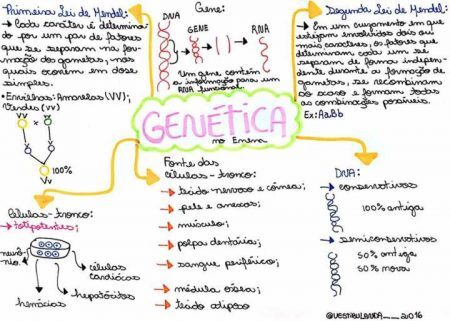 Primeira Lei de Mendel:
↳ Cada caráter é determina-
do por um par de fatores
que se separam na for-
mação dos gametas, nas
quais ocorrem em dose
simples.
• Ervilhas: Amarelas (VV);
Verdes (vv)
VV x vv
100%
Vv
Gene:
DNA
GENE
RNA
Um gene contém
a informação para um
RNA funcional.
Segunda Lei de Mendel:
↳ Em um cruzamento em que
estejam envolvidos dois ou
mais caracteres, os fatores que
determinam cada um se
separam de forma indepen-
dente durante a formação de
gametas, se recombinam
ao acaso e formam todas
as combinações possíveis.
Ex: AaBb
GENÉTICA
no Enem
Células-tronco:
→ totipotentes;
neurô-
nio
células
cardíacas
hepatócitos
hemácias
Fonte das
células-tronco:
→ tecido nervoso e córnea;
→ pele e anexos;
→ músculo;
→ polpa dentária;
→ sangue periférico;
→ médula óssea;
→ tecido adiposo
DNA:
→ conservativos
100% antiga
→ semiconservativos
50% antiga
50% nova
@VESTIBULANDA___2016